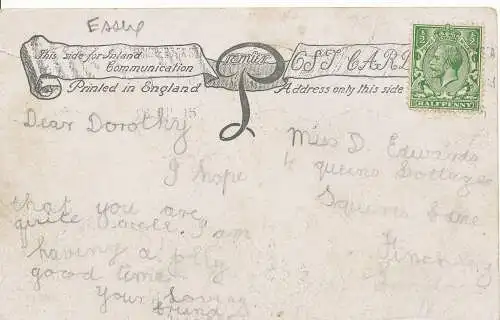 Essex
This side for Inland
Communication
Printed in England
Premier
POST CARD
Address only this side
HALFPENNY
Dear Dorothy
I hope
that you are
quite I am
having a jolly
good time
Your Loving
friend
Miss D. Edwards
4 queens Cottages
Squires Lane
Finchley